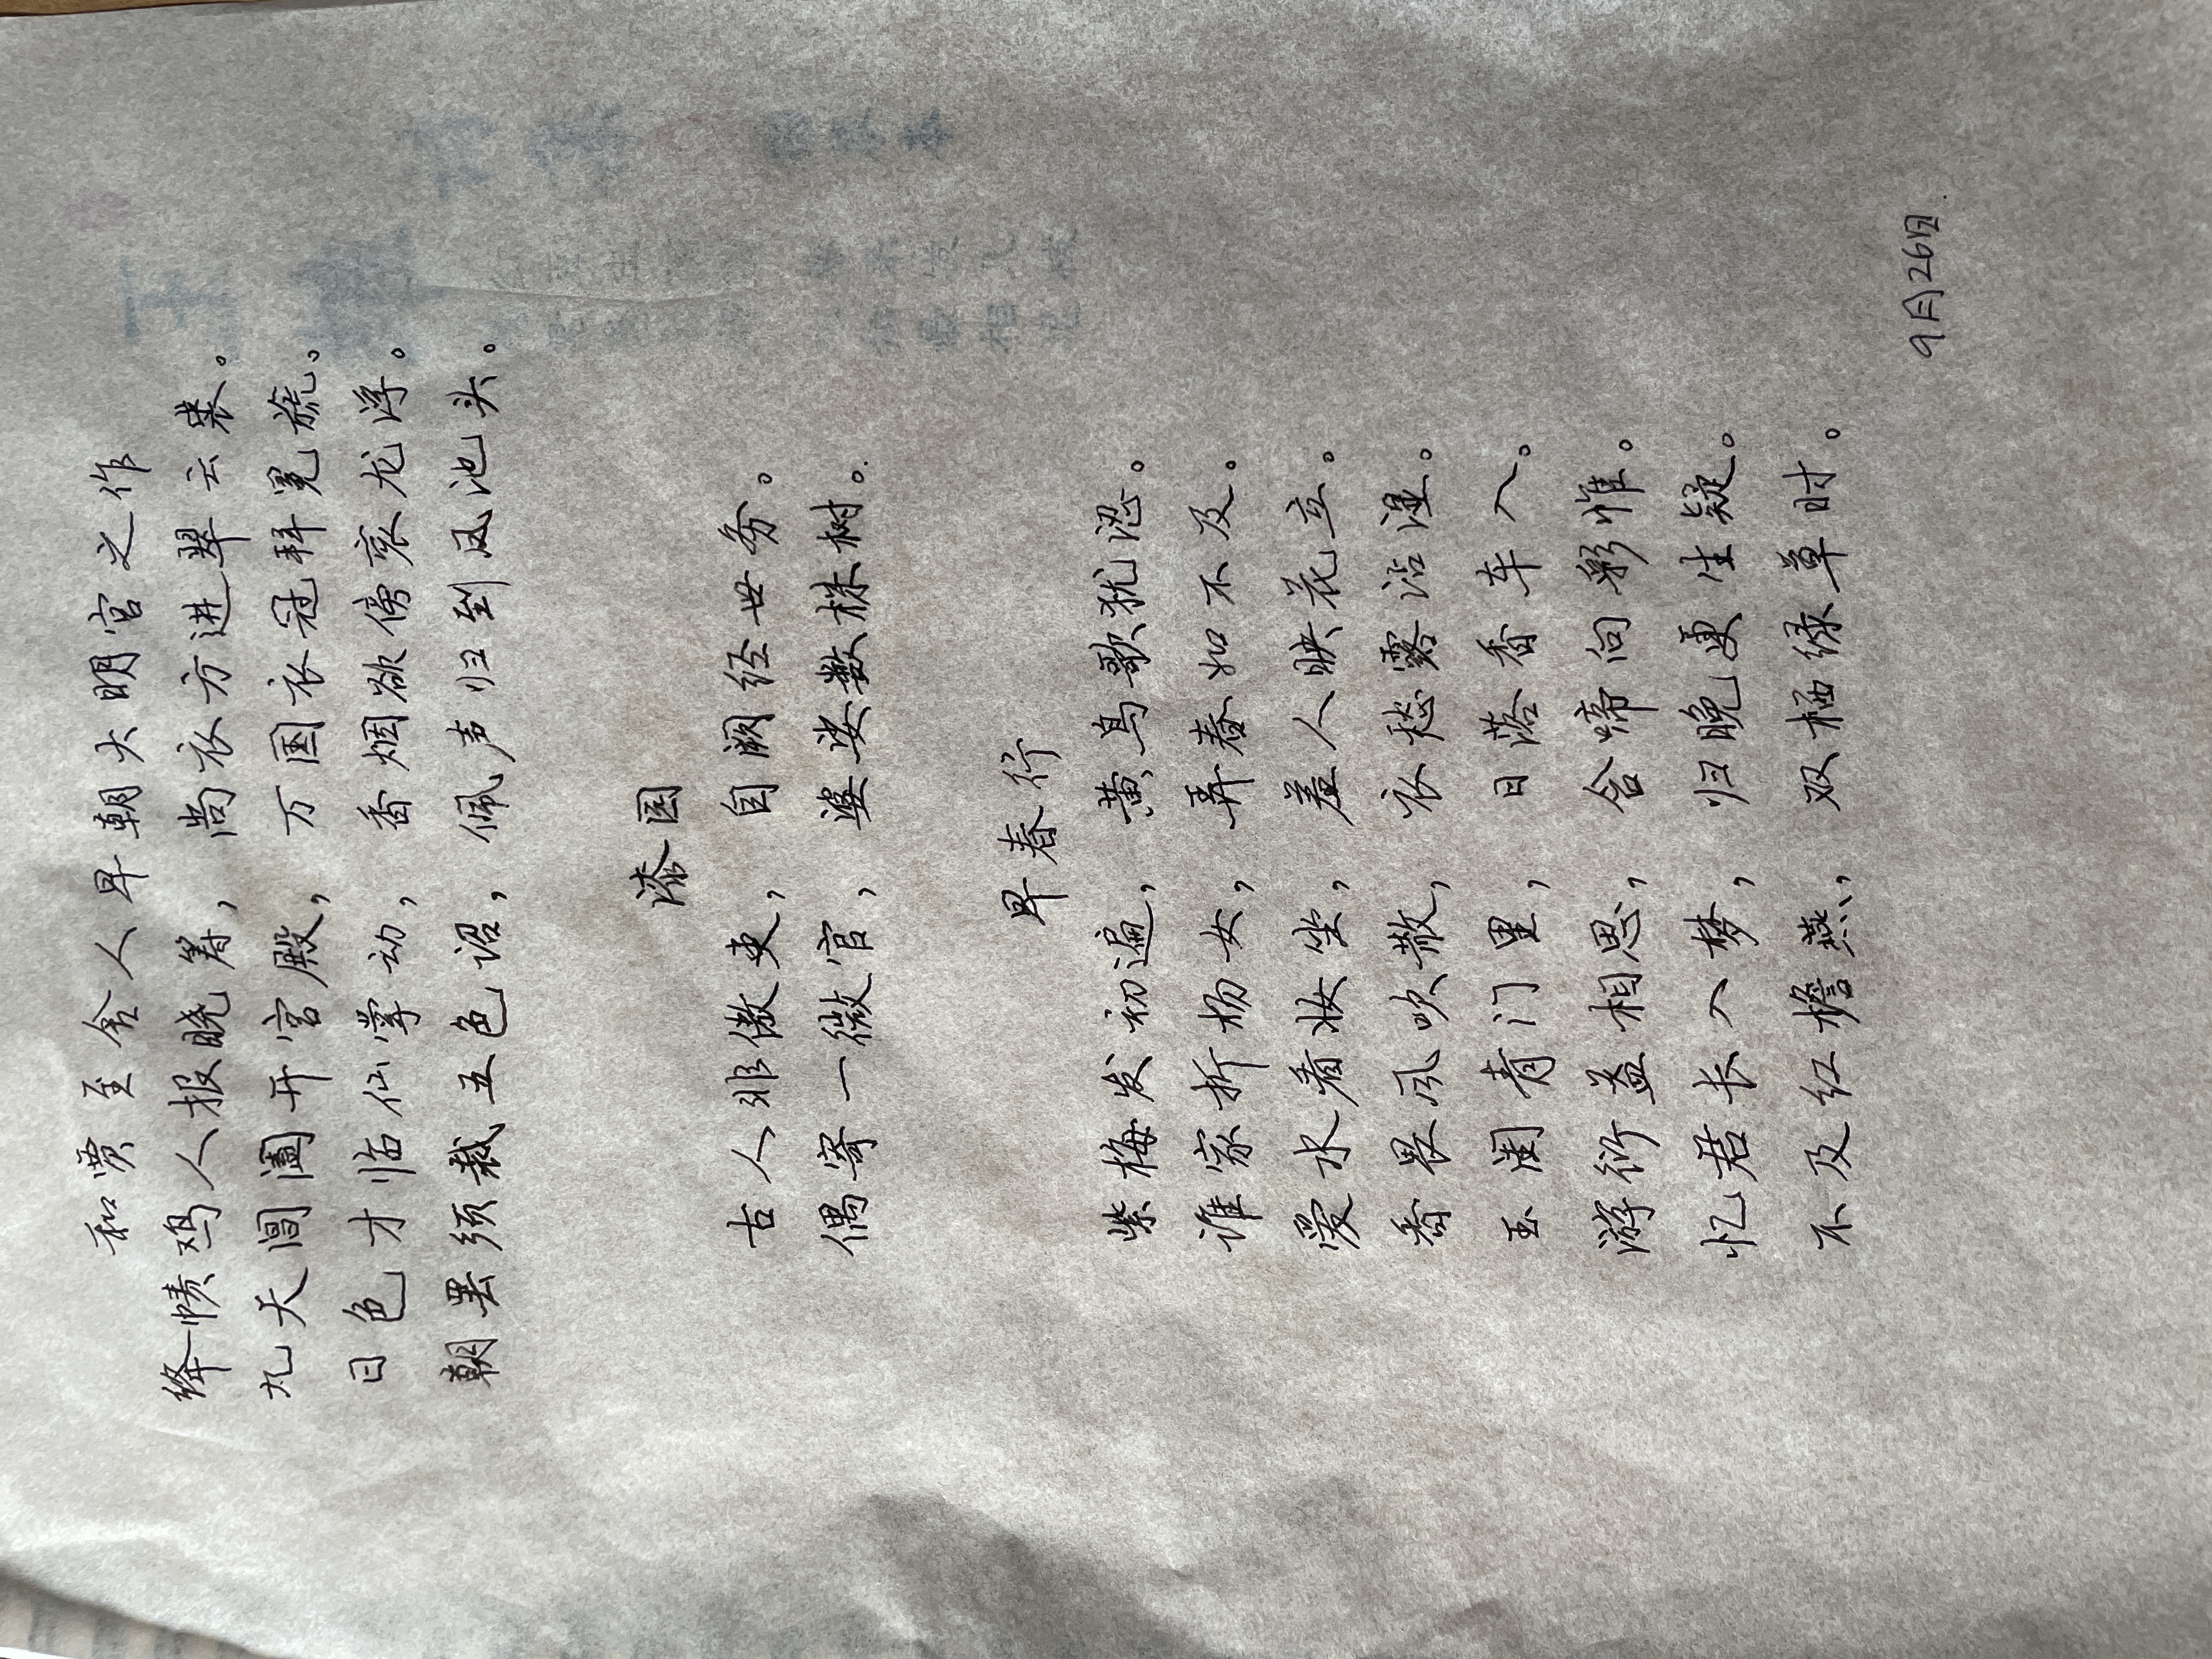 和贾至舍人早朝大明宫之作
绛帻鸡人报晓筹，尚衣方进翠云裘。
九天阊阖开宫殿，万国衣冠拜冕旒。
日色才临仙掌动，香烟欲傍衮龙浮。
朝罢须裁五色诏，佩声归到凤池头。
漆园
古人非傲吏，自阙经世务。
偶寄一微官，婆娑数株树。
早春行
紫梅发初遍，黄鸟歌犹涩。
谁家折杨女，弄春如不及。
爱水看妆坐，羞人映花立。
香畏风吹散，衣愁露沾湿。
玉闺青门里，日落香车入。
游衍益相思，含啼向彩帷。
忆君长入梦，归晚更生疑。
不及红檐燕，双栖绿草时。
9月26日.